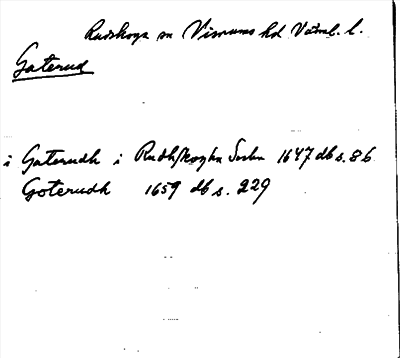 Rudskoga sn Visnums hd Värml. l.
Goterud
i Goterudh i Rudhskogha Sockn 1647 db s. 86
Goterudh 1659 db s. 229